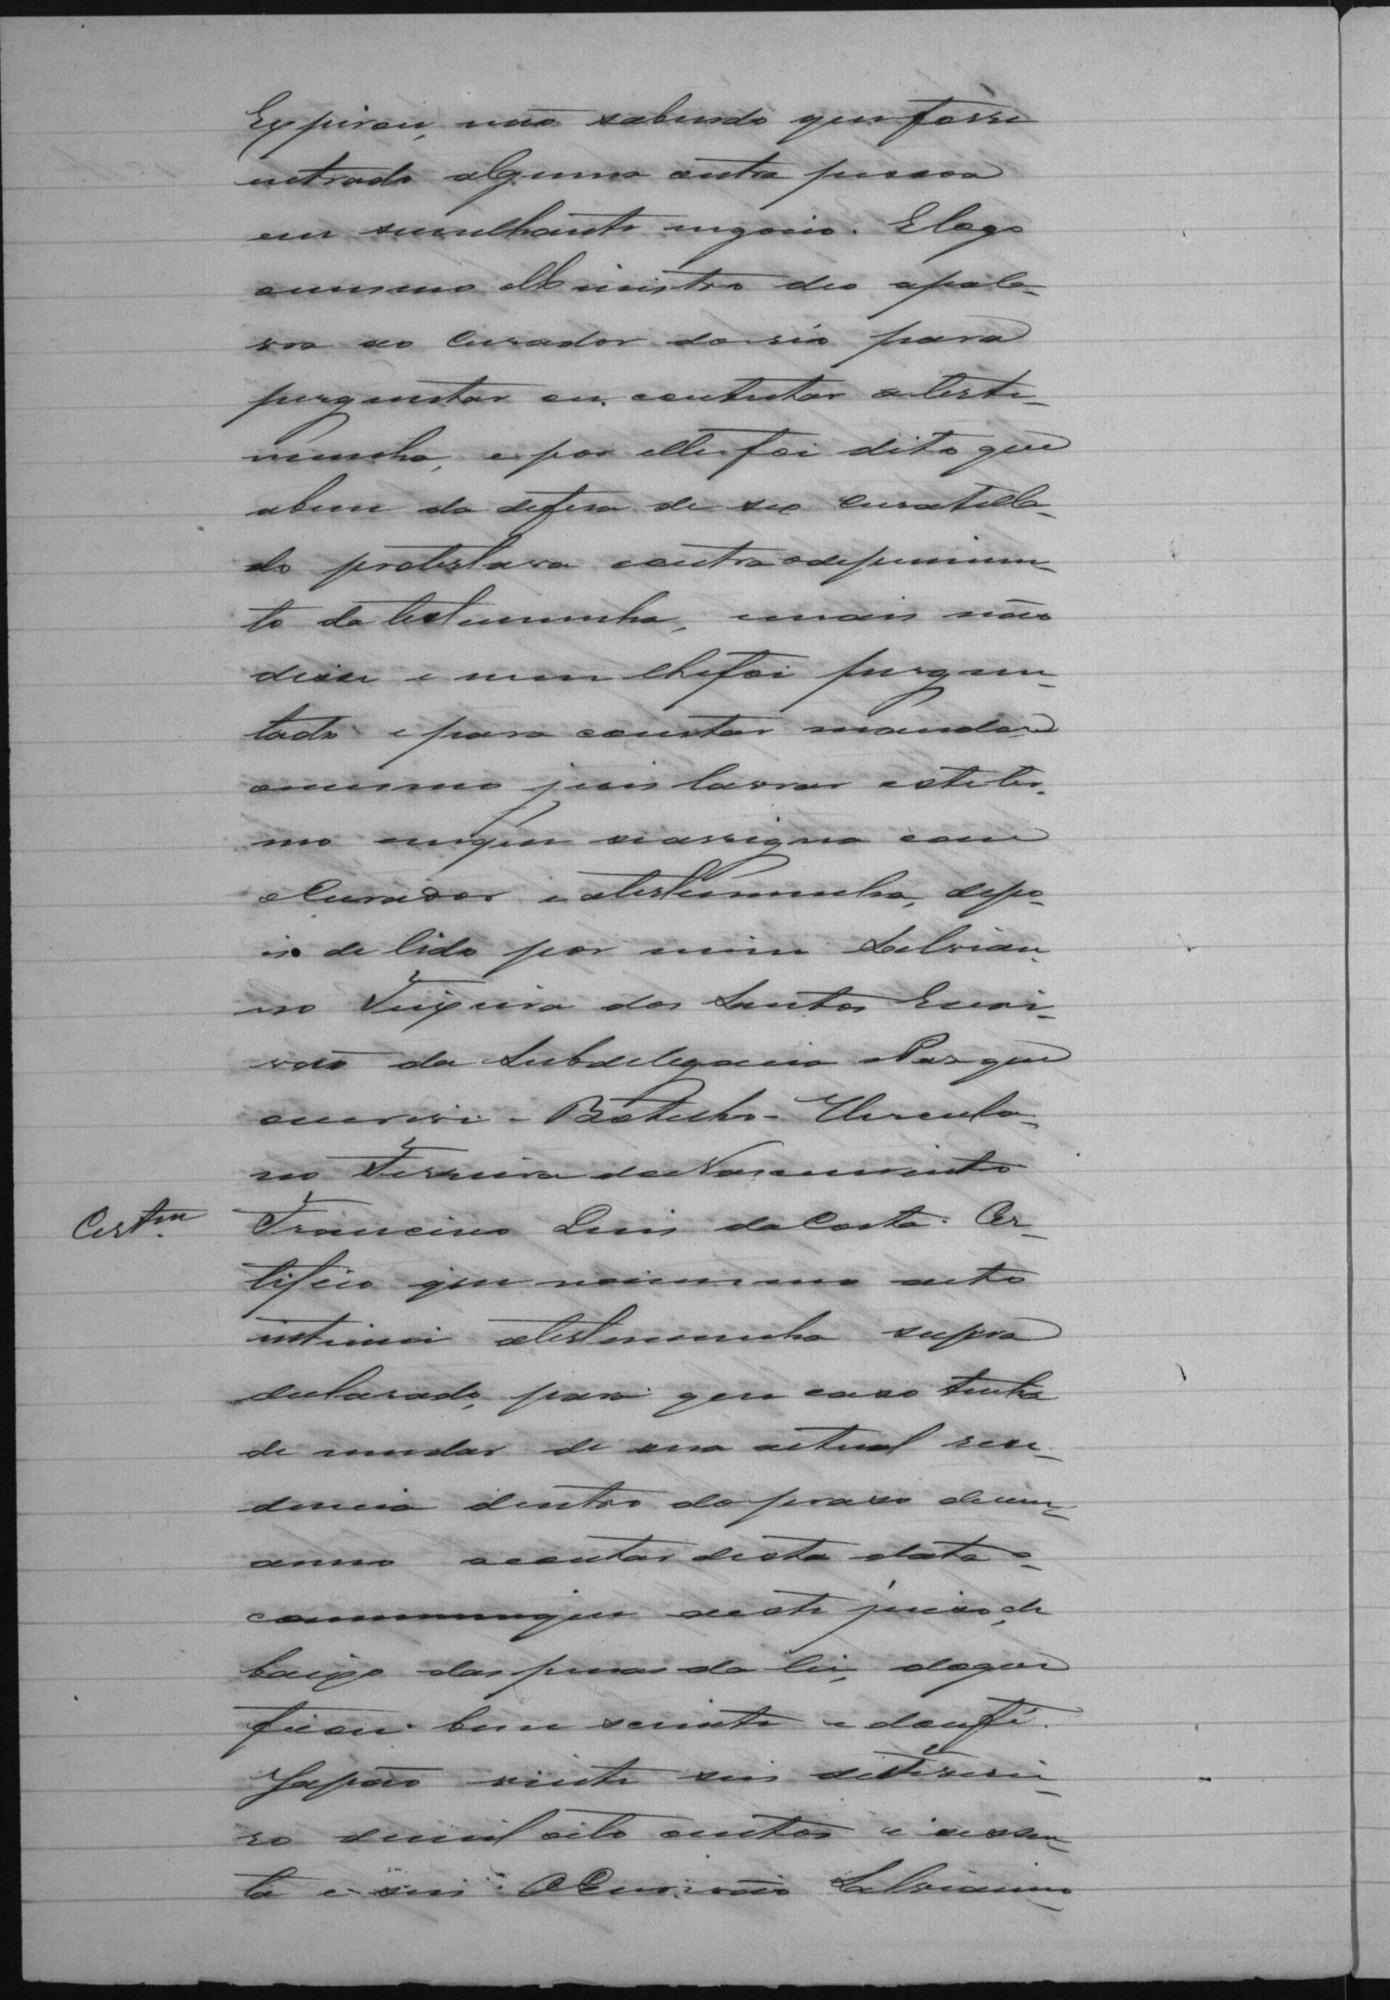 Expirou, não sabendo que fosse
entrado alguma outra pessoa
em semelhante negocio. E logo
omesmo Ministro deo apala-
vra ao Curador do reo para
perguntar ou contestar ateste-
munha, e por elle foi dito que
abem da defesa de seo curatella-
do protestava contra odepoimen-
to da testemunha, emais não
disse e nem lhefoi pergun-
tado e para constar mandou
omesmo juis lavrar este ter-
mo emque seassigna com
oCurador e atestemunha, depo-
is de lido por mim Salvian-
no Teixeira dos Santos Escri-
vão da Subdelegacia e Paz que
oescrivi - Botelho - Hercula-
no Ferreira do Nascimento
Cert.am Francisco Luis da Costa. Cer-
tifico que nomesmo auto
intimei atestemunha supra
declarada, para que caso tenha
de mudar de sua actual resi-
dencia dentro do praso deum
anno acontar desta data o
communique aeste juiso, de
baixo das penas da lei, doque
ficou bem sciente e doufé.
Japão vinte seis deFeverei-
ro demil oito centos e sessen-
ta e seis. OEscrivão Salvianno